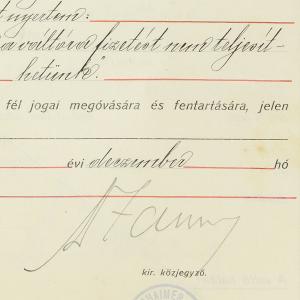 nyertem:
a váltóra fizetést nem teljesít-
hetünk"
fél jogai megóvására és fentartására, jelen
évi deczember hó
kir. közjegyző.